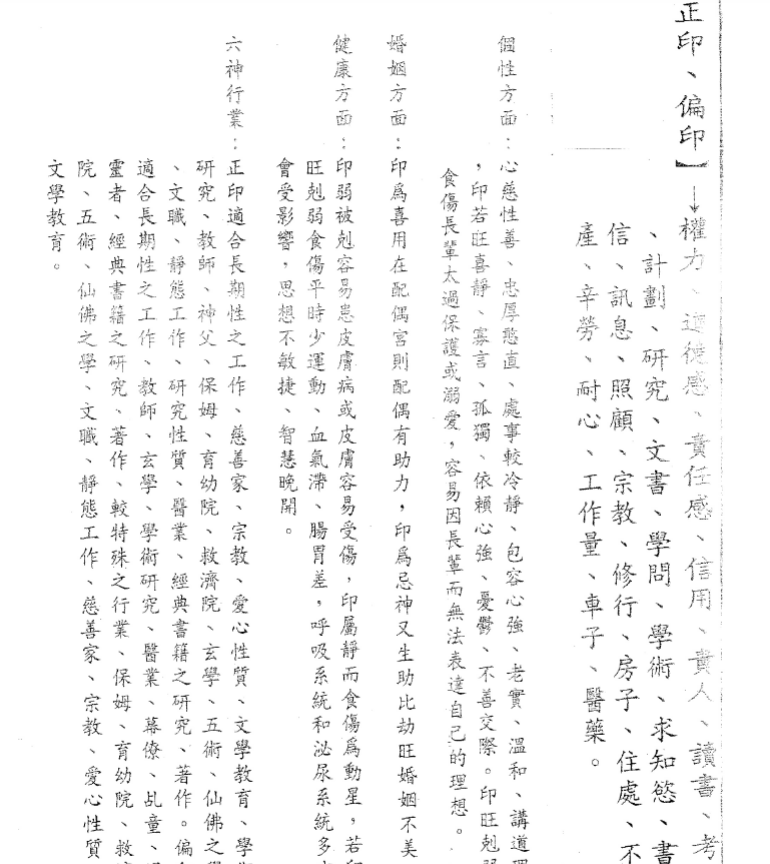 正印、偏印】→權力、道德感、責任感、信用、貴人、讀書、考
、計劃、研究、文書、學問、學術、求知慾、書
信、訊息、照顧、宗教、修行、房子、住處、不
產、辛勞、耐心、工作量、車子、醫藥。
個性方面：心慈性善、忠厚憨直、處事較冷靜、包容心強、老實、溫和、講道理
，印若旺喜靜、寡言、孤獨、依賴心強、憂鬱、不善交際。印旺剋弱
食傷長輩太過保護或溺愛，容易因長輩而無法表達自己的理想。
婚姻方面：印為喜用在配偶宮則配偶有助力，印為忌神又生助比劫旺婚姻不美
健康方面：印弱被剋容易患皮膚病或皮膚容易受傷，印屬靜而食傷為動星，若印
旺剋弱食傷平時少運動、血氣滯、腸胃差，呼吸系統和泌尿系統多
會受影響，思想不敏捷、智慧晚開。
六神行業：正印適合長期性之工作、慈善家、宗教、愛心性質、文學教育、學術
研究、教師、神父、保姆、育幼院、救濟院、玄學、五術、仙佛之學
、文職、靜態工作、研究性質、醫業、經典書籍之研究、著作。偏
適合長期性之工作、教師、玄學、學術研究、醫業、幕僚、乩童、
靈者、經典書籍之研究、著作、較特殊之行業、保姆、育幼院、救
院、五術、仙佛之學、文職、靜態工作、慈善家、宗教、愛心性質
文學教育。